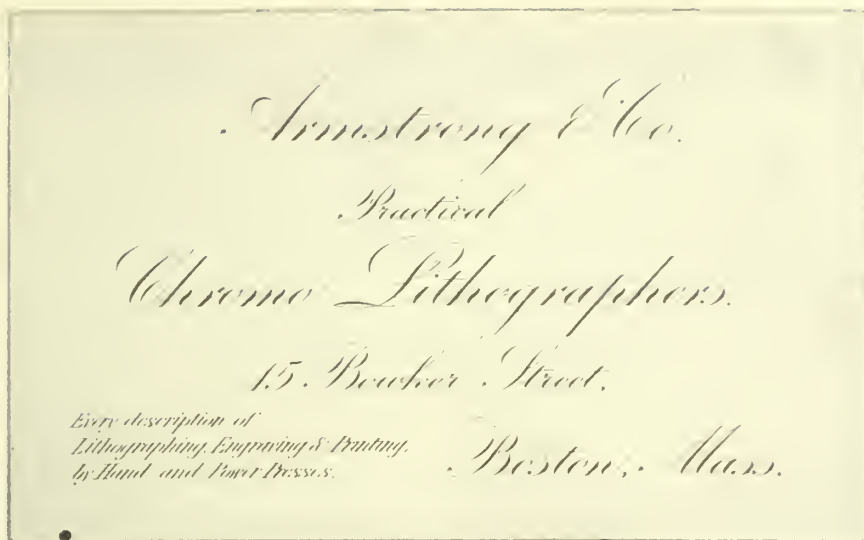 Armstrong & Co.
Practical
Chromo Lithographers.
15. Bowker Street.
Every description of
Lithographing, Engraving & Printing,
by Hand and Power Presses.
Boston, Mass.